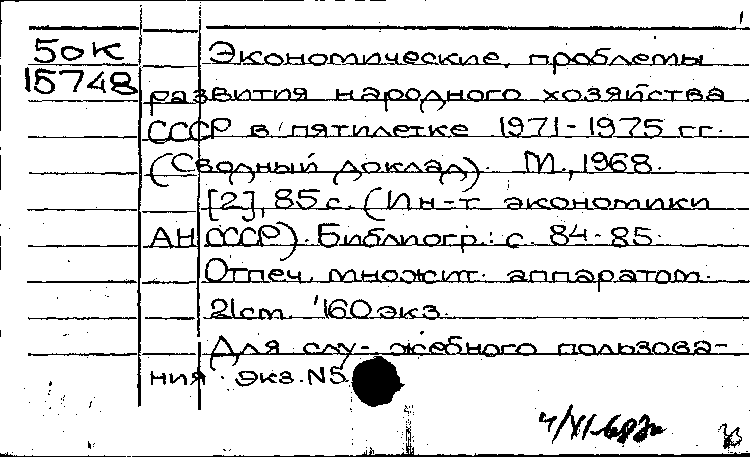 50к Экономические проблемы
15748 развития народного хозяйства
СССР в пятилетке 1971-1975 гг.
(Сводный доклад). М., 1968.
[2], 85 с. (Ин-т экономики
АН СССР). Библиогр.: с. 84-85.
Отпеч. множит. аппаратом.
21 cm. 160 экз.
Для слу- жебного пользова-
ния. Экз. N5
4/XI-68